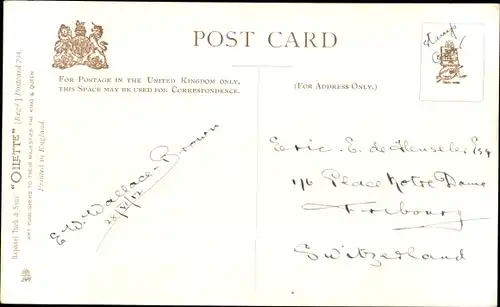 POST CARD
FOR POSTAGE IN THE UNITED KINGDOM ONLY,
THIS SPACE MAY BE USED FOR CORRESPONDENCE.
(FOR ADDRESS ONLY.)
Raphael Tuck & Sons' "OILETTE" [Regd.] Postcard 794.
ART PUBLISHERS TO THEIR MAJESTIES THE KING & QUEEN
Printed in England.
E W. Wallace-Brown
28/XI/12
stamp
Eric. E. de Henseler Esq
Place Notre Dame
Fribourg
Switzerland